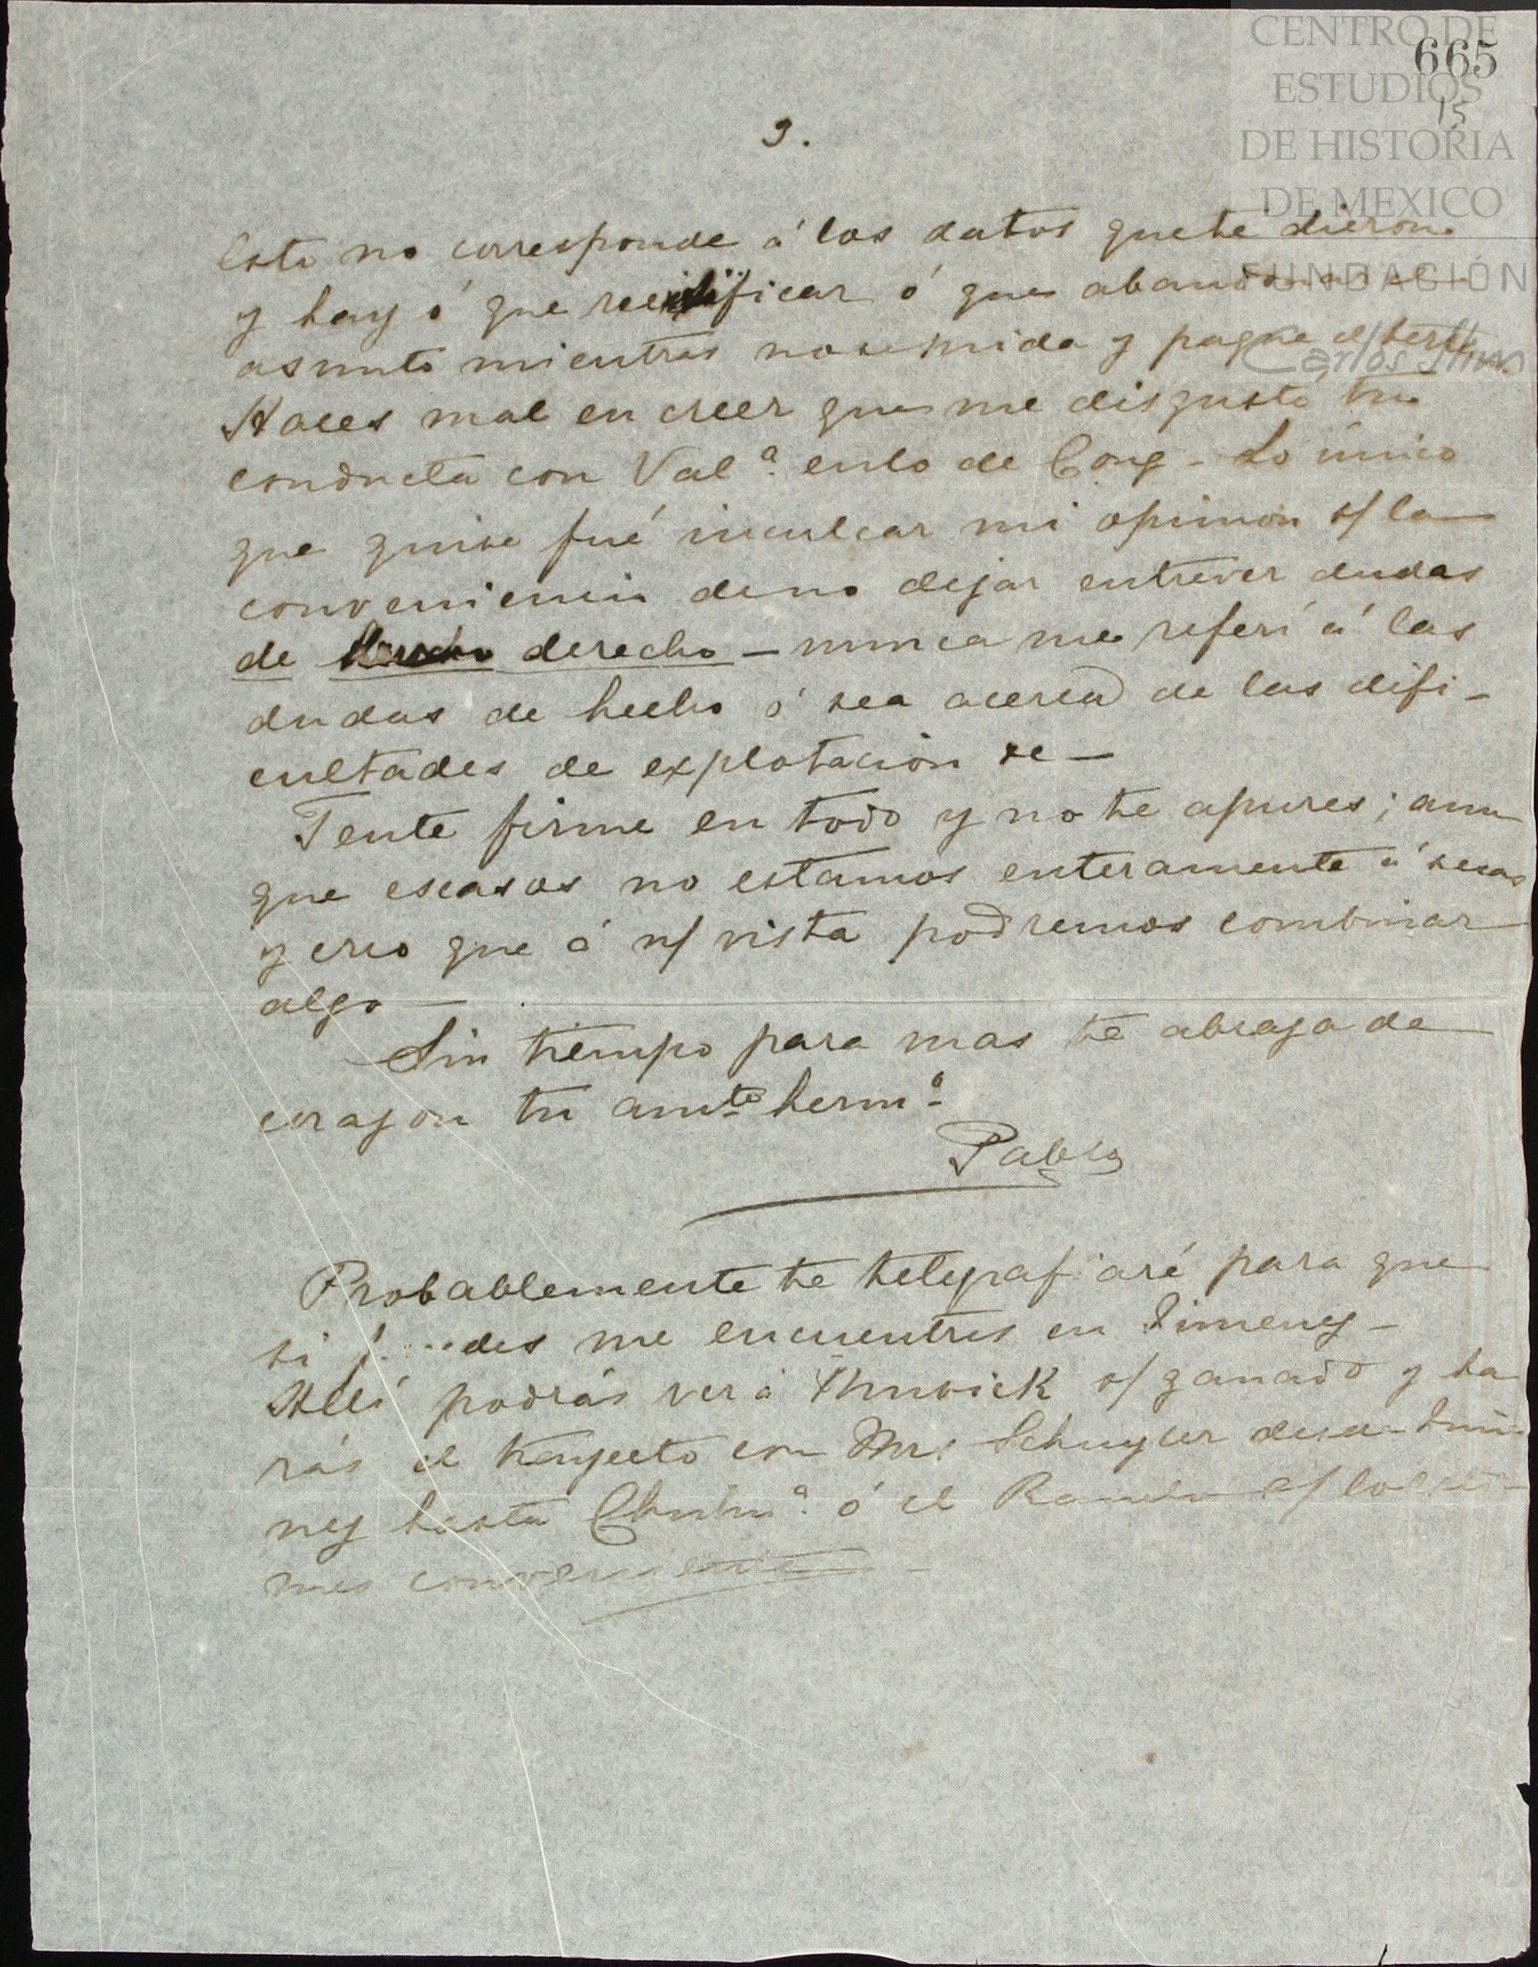 CENTRO DE
ESTUDIOS
DE HISTORIA
DE MEXICO
FUNDACIÓN
Carlos Slim
665
15
3.
Esto no corresponde á los datos que te dieron
y hay ó que rectificar ó que abandonar el
asunto mientras no se mida y pague el
Haces mal en creer que me disgustó tu
conducta con Val.ª en lo de Cong - Lo único
que quise fué inculcar mi opinion s/ la
conveniencia de no dejar entrever dudas
de derecho - nunca me referí á las
dudas de hecho ó sea acerca de las difi-
cultades de explotacion
Tente firme en todo y no te apures; aun
que escasos no estamos enteramente á secas
y creo que á n/ vista podremos combinar
algo -
Sin tiempo para mas te abraza de
corazon tu amte. hermº.
Pablo
Probablemente te telegrafiaré para que
si me encuentres en Jimenez -
Allí podrás ver á s/ ganado y ha
rás el trayecto con Mr. Schuyler desde Jimé
nez hasta Chihuª. ó el Rancho s/ lo esti-
mes conveniente -